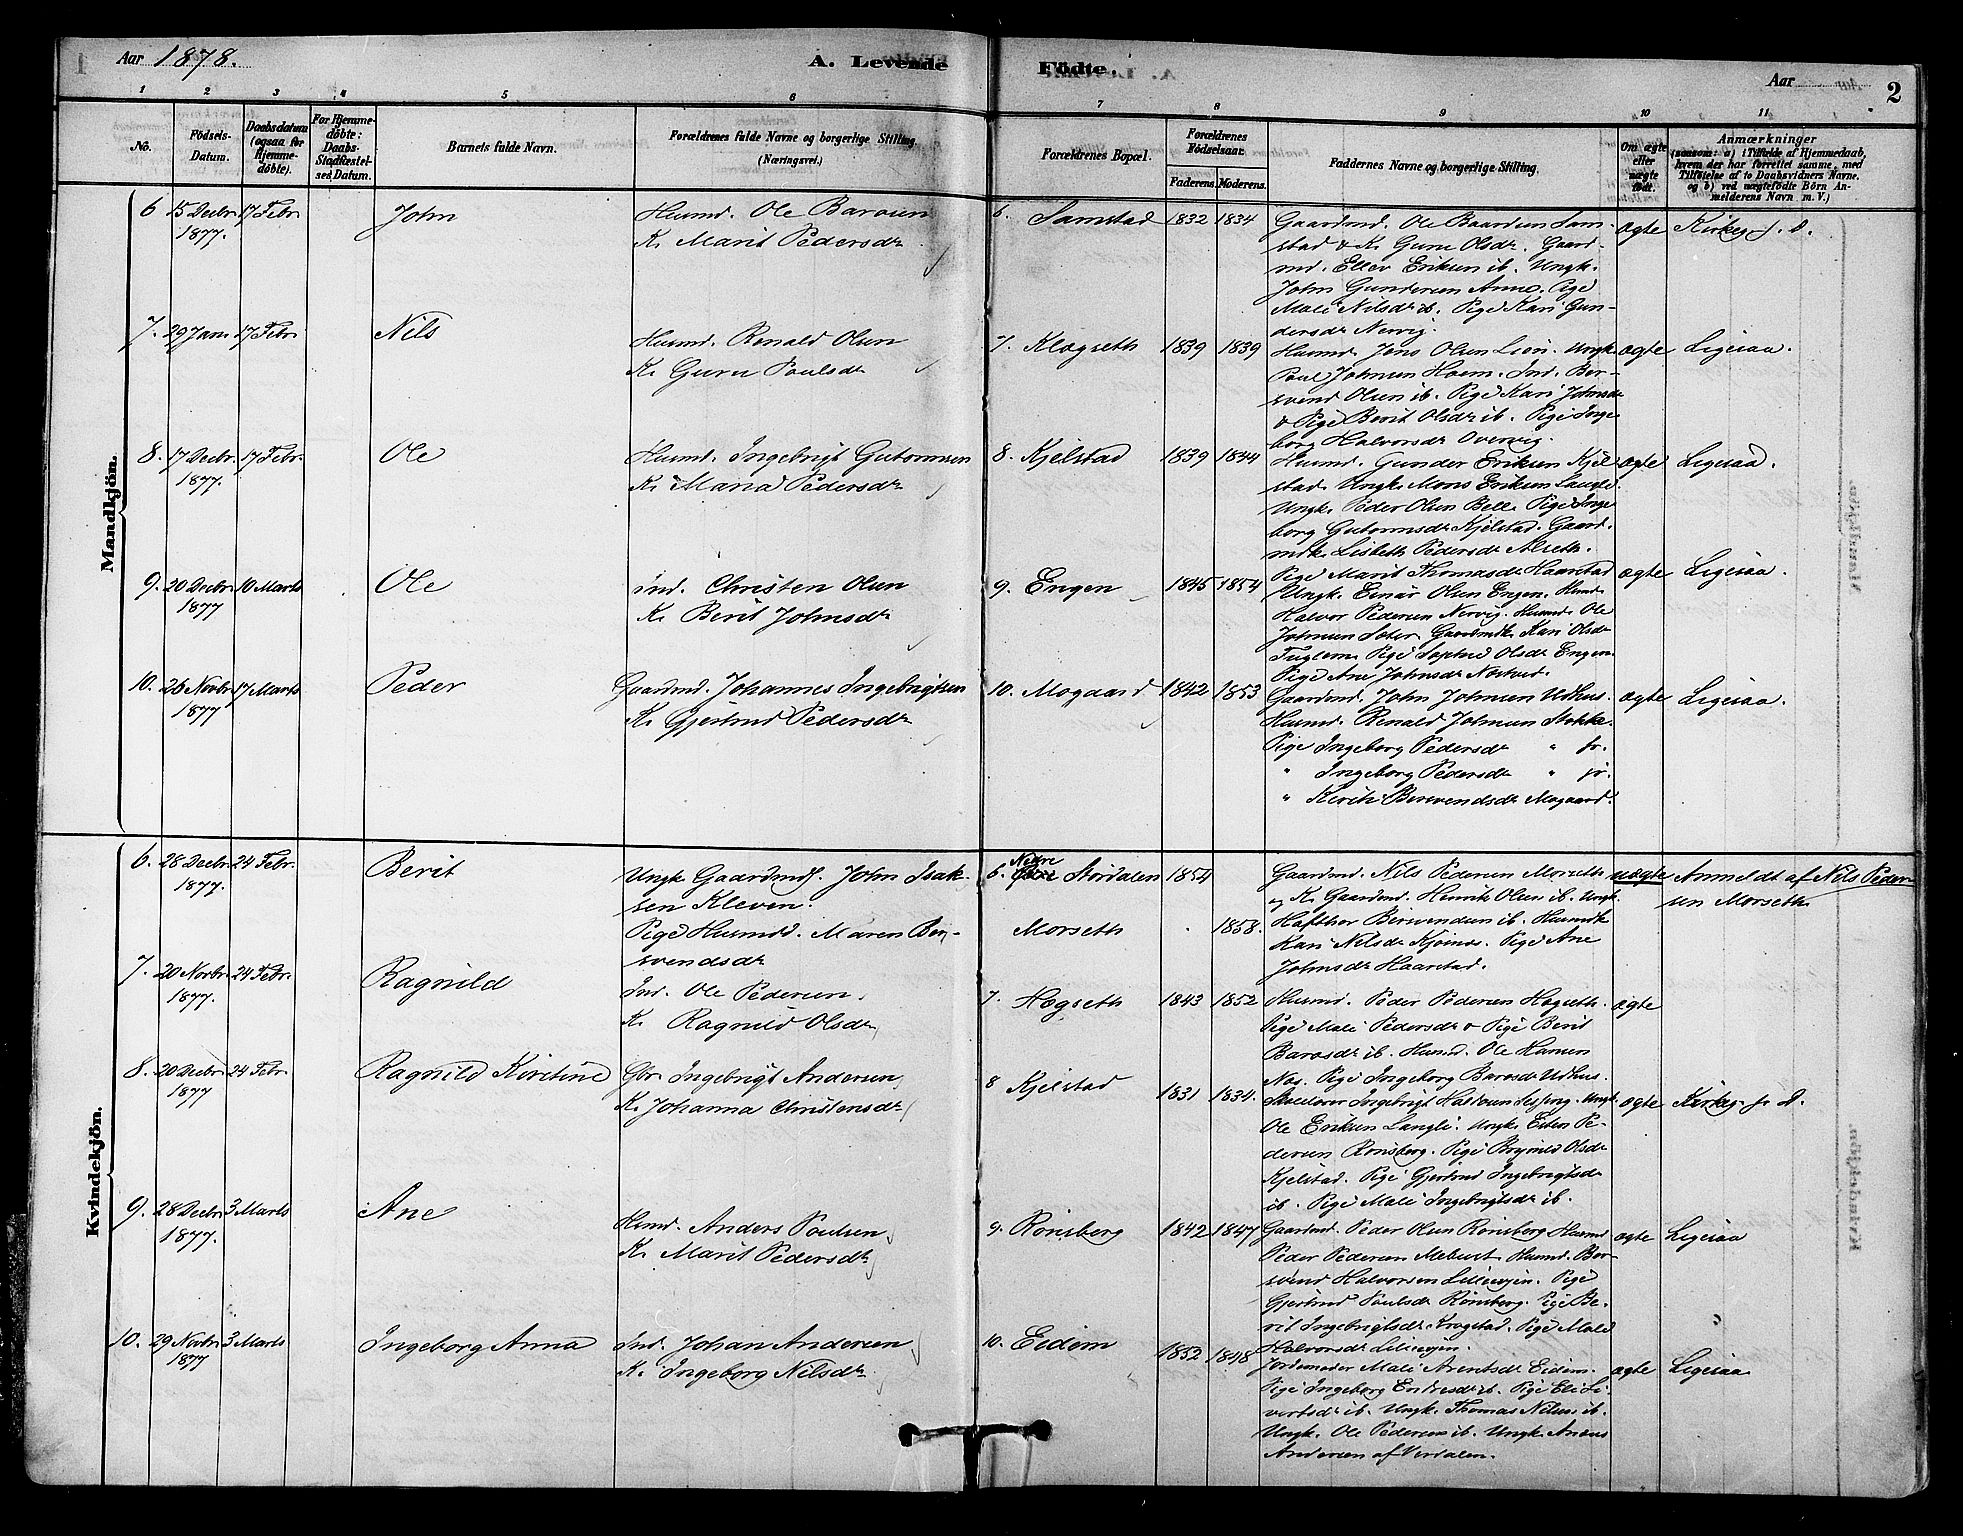 Aar 1878.
A. Levende
Födte.
Aar
2
1 2 3 4 5 6 7 8 9 10 11
No.
Födsels-Datum.
Daabsdatum (ogsaa for Hjemmedöbte).
For Hjemmedöbte: Daabs-Stadfæstelses Datum.
Barnets fulde Navn.
Forældrenes fulde Navne og borgerlige Stilling (Næringsvei.)
Forældrenes Bopæl.
Forældrenes Födselsaar.
Faderens. Moderens.
Faddernes Navne og borgerlige Stilling.
Om ægte eller uægte födt.
Anmærkninger
(saasom: a) i Tilfælde af Hjemmedaab,
hvem der har forrettet samme, med
Tilföielse af to Daabsvidners Navne,
og b) ved uægtefödte Börn Anmelderens Navn m. V.)
Mandkjön.
6 15 Decbr 1877. 17 Febr John
Husmd. Ole Barosen
K. Marit Pedersdr
6. Samstad 1832 1834
Gaardmd. Ole Baardsen Sam-
stad & K. Guru Olsdr. Gaard-
md. Ellev Eriksen ib. Ungk.
John Gundersen Anmo. Pige
Mali Nilsdr ib. Pige Kari Gun-
dersdr Nervig.
ægte Kirkeg. f. D.
7. 29 Jan 17 Febr Nils
Husmd. Renald Olsen
K. Guru Poulsdr
7. Klogseth 1839 1839
Husmd. Jens Olsen Lien. Ungk
Poul Johnsen Hoem. Ind. Ber-
svend Olsen ib. Pige Kari Johnsdr
& Pige Berit Olsdr ib. Pige Inge-
borg Halvorsdr Overvig.
ægte Ligesaa.
8. 17 Decbr. 1877. 17 Febr. Ole
Husmd. Ingebrigt Gutormsen
K. Maria Pedersdr
8. Kjelstad 1839 1844
Husmd. Gunder Eriksen Kjel-
stad. Ungk. Mons Eriksen Langli.
Ungk. Peder Olsen Bell. Pige Inge
borg Gutormsdr Kjelstad. Gaard-
mdk. Lisbeth Pedersdr Alseth.
ægte Ligesaa.
9. 20 Decbr 1877 10 Marts Ole
Ind. Christen Olsen
K. Berit Johnsdr
9. Engen 1845 1854
Pige Marit Thomasdr Haarstad
Ungk. Einar Olsen Engen. Husmd.
Halvor Pedersen Nervig. Husmd. Ole
Johnsen Seter. Gaardmdk Kari Olsdr
Fuglem. Pige Olsdr Engen.
Pige Ane Johnsdr
ægte Ligesaa.
10. 26 Novbr 1877 17 Marts Peder
Gaardmd. Johannes Ingebrigtsen
K. Gjertrud Pedersdr
10. Mogaard 1842 1853
Gaardmd. John Johnsen Udhus.
Husmd. Renald Johnsen Stokke.
Pige Ingeborg Pedersdr " sr.
" Ingeborg Pedersdr " jr.
" Bersvendsdr Mogaard.
ægte Ligesaa.
Kvindekjön.
6. 28 Decbr. 1877. 24 Febr. Berit
Ungk. Gaardmds. John Isak-
sen Kleven.
Pige Husmdd. Maren Ber-
svendsdr
6. Nedre Stordalen 1854
Morseth 1858.
Gaardmd. Nils Pedersen Morseth
og K. Gaardmd. Henrik Olsen ib. Ungk.
Hafthor Bersvendsen ib. Husmdk
Kari Nilsdr Kjoinas. Pige Ane
Johnsdr Haarstad.
uægte Anmeldt af Nils Peder-
sen Morseth
7. 20 Novbr. 1877. 24 Febr. Ragnild
Ind. Ole Pedersen.
K. Ragnild Olsdr
7. Hogseth 1843 1852
Husmd. Peder Pedersen Hogseth.
Pige Mali Pedersdr & Pige Berit
Barosdr ib. Husmd. Ole Hansen
Nos. Pige Ingeborg Barosdr Udhus.
ægte
8. 20 Decbr. 1877 24 Febr. Ragnild Kirstine
Gbr. Ingebrigt Andersen
K. Johanna Christensdr
8 Kjelstad 1831 1834.
Skolelærer Ingebrigt Halvorsen Ungk.
Ole Eriksen Langli. Ungk. Esten Pe-
dersen Rönsberg. Pige Brynild Olsdr
Kjelstad. Pige Gjertrud Ingebrigtsdr
ib. Pige Mali Ingebrigtsdr ib.
ægte Kirkeg. f. D.
9. 28 Decbr. 1877. 3 Marts Ane
Husmd. Anders Poulsen
K. Marit Pedersdr
9. Rönsberg 1842 1847
Gaardmd. Peder Olsen Rönsberg Husmd
Peder Pedersen Mebust. Husmd. Ber-
svend Halvorsen Lilleevjen. Pige
Gjertrud Poulsdr Rönsberg. Pige Be-
rit Ingebrigtsdr Krogstad. Pige Mali
Halvorsdr Lilleevjen.
ægte Ligesaa
10. 29 Novbr. 1877 3 Marts Ingeborg Anna
Ind. Johan Andersen
K. Ingeborg Nilsdr
10. Eidem 1852 1848
Jordemoder Mali Arentsdr Eidem.
Pige Ingeborg Endresdr ib. Pige Eli Si-
vertsdr ib. Ungk. Thomas Nilsen ib.
Ungk. Ole Pedersen ib. Ungk. Anders
Andersen af Verdalen.
ægte Ligesaa